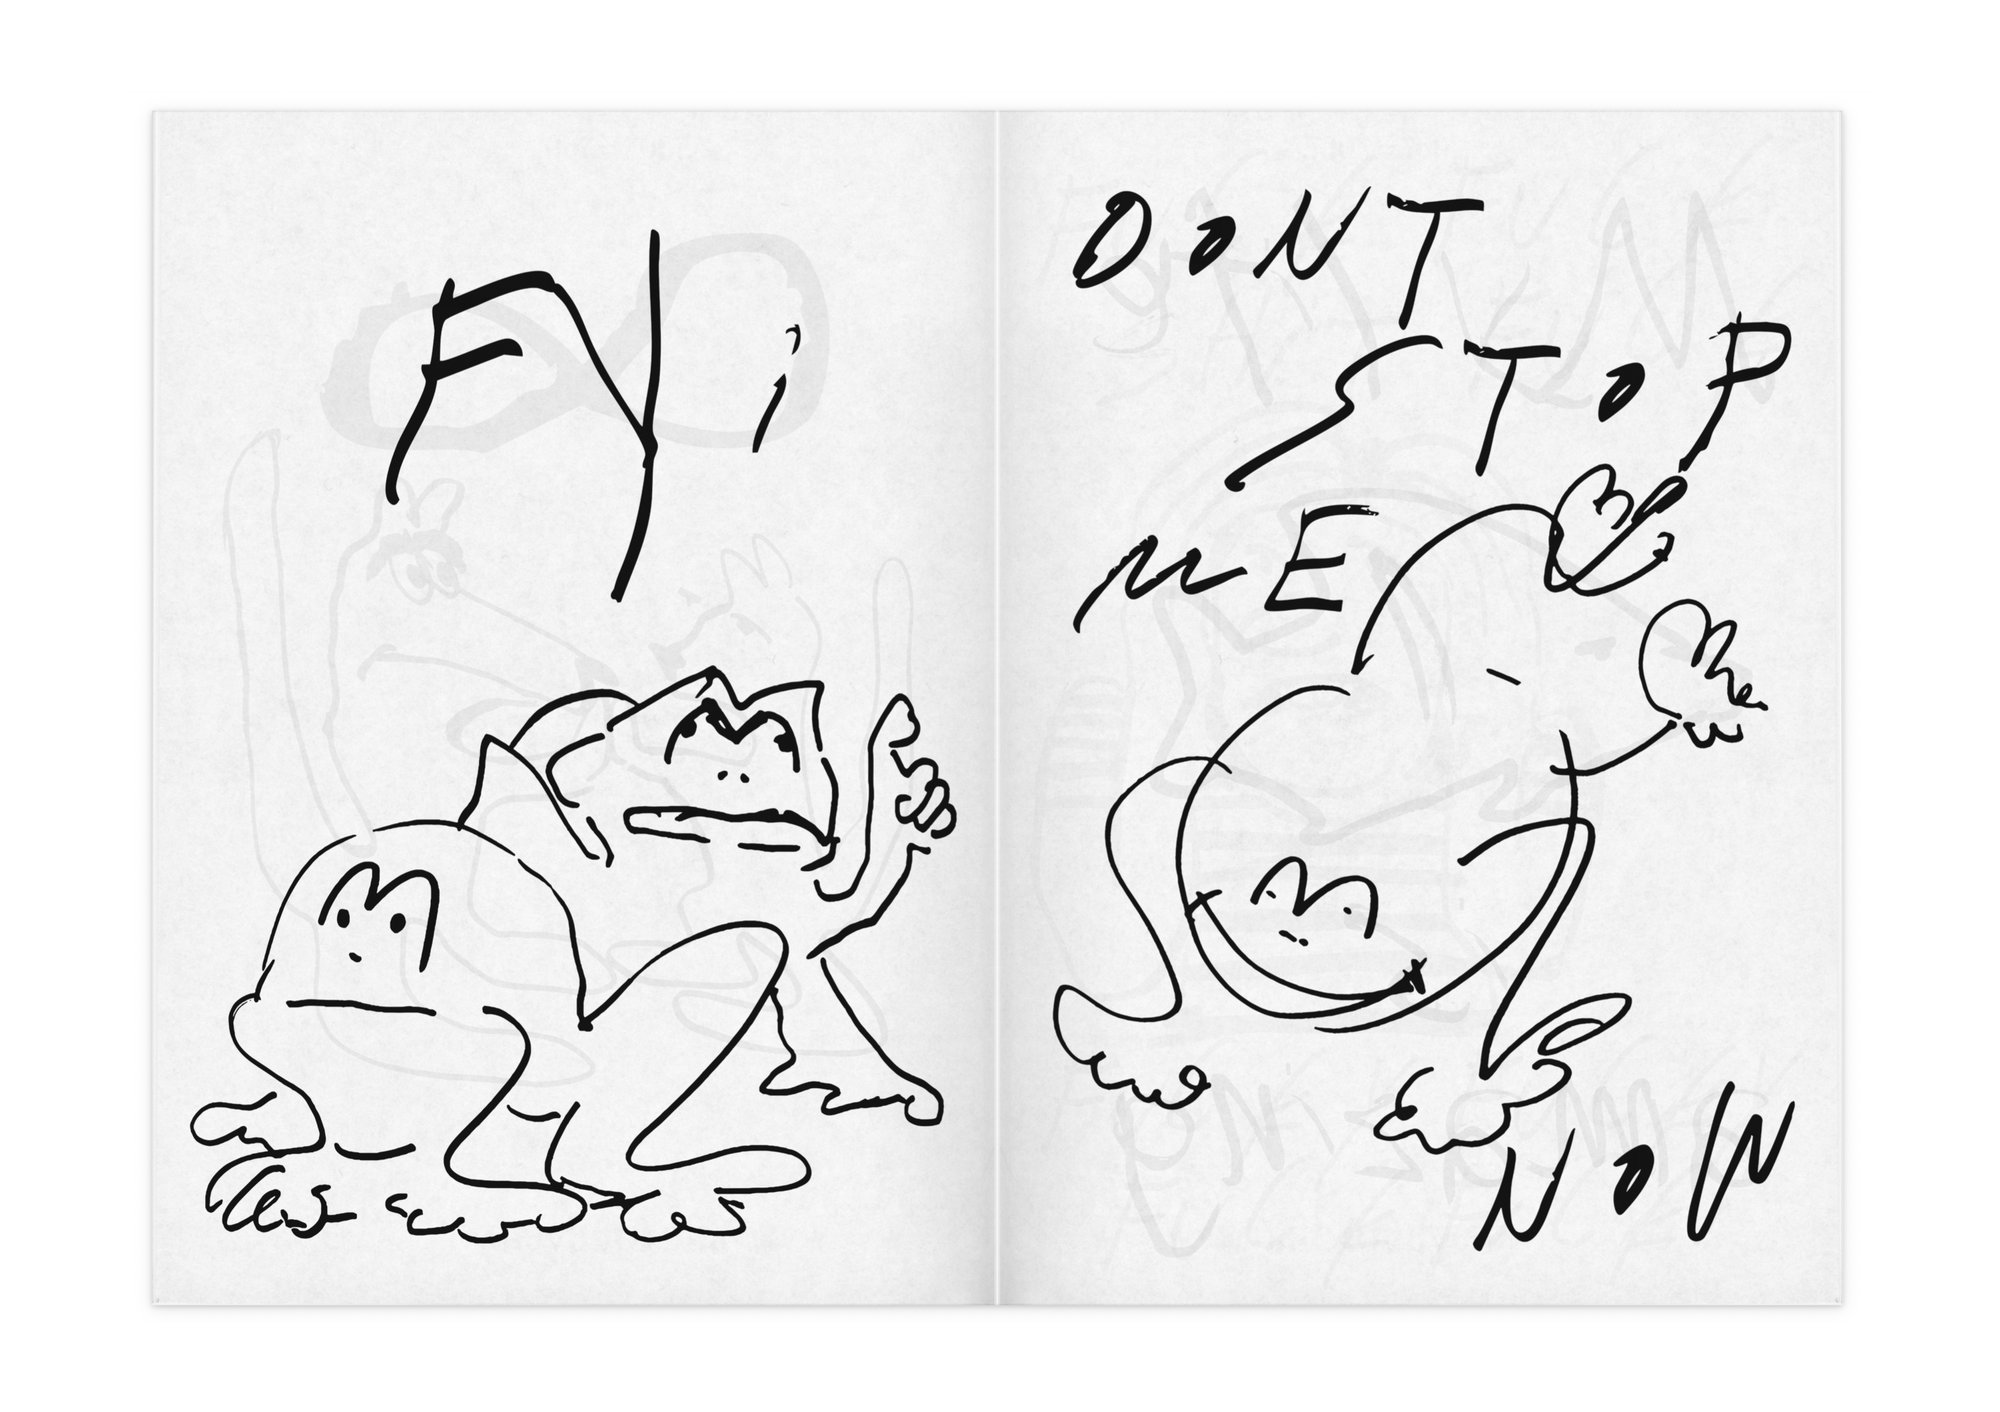 FYi
DONT
STOP
ME
NOW